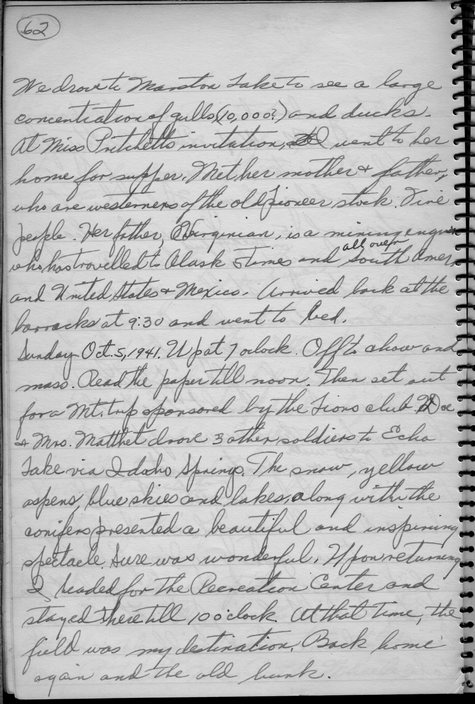 62
We drove to Marston Lake to see a large
concentration of gulls (10,000?) and ducks.
At Miss Pritchetts invitation, I went to her
home for supper. Met her mother & father,
who are westerners of the old pioneer stock. Fine
people. Her father, a Virginian, is a mining engineer
who has travelled to Alask 5 times and all over South Amer,
and United States & Mexico. Arrived back at the
barracks at 9:30 and went to bed.
Sunday Oct. 5, 1941. Up at 7 oclock. Off to chow and
mass. Read the paper till noon. Then set out
for a Mt. trip sponsored by the Lions club. Doc
& Mrs. drove 3 other soldiers to Echo
Lake via Idaho Springs. The snow, yellow
aspens, blue skies and lakes, along with the
conifers presented a beautiful and inspiring
spectacle. Sure was wonderful. Upon returning
I headed for the Recreation Center and
stayed there till 10 o'clock. At that time, the
field was my destination. Back home
again and the old bunk.